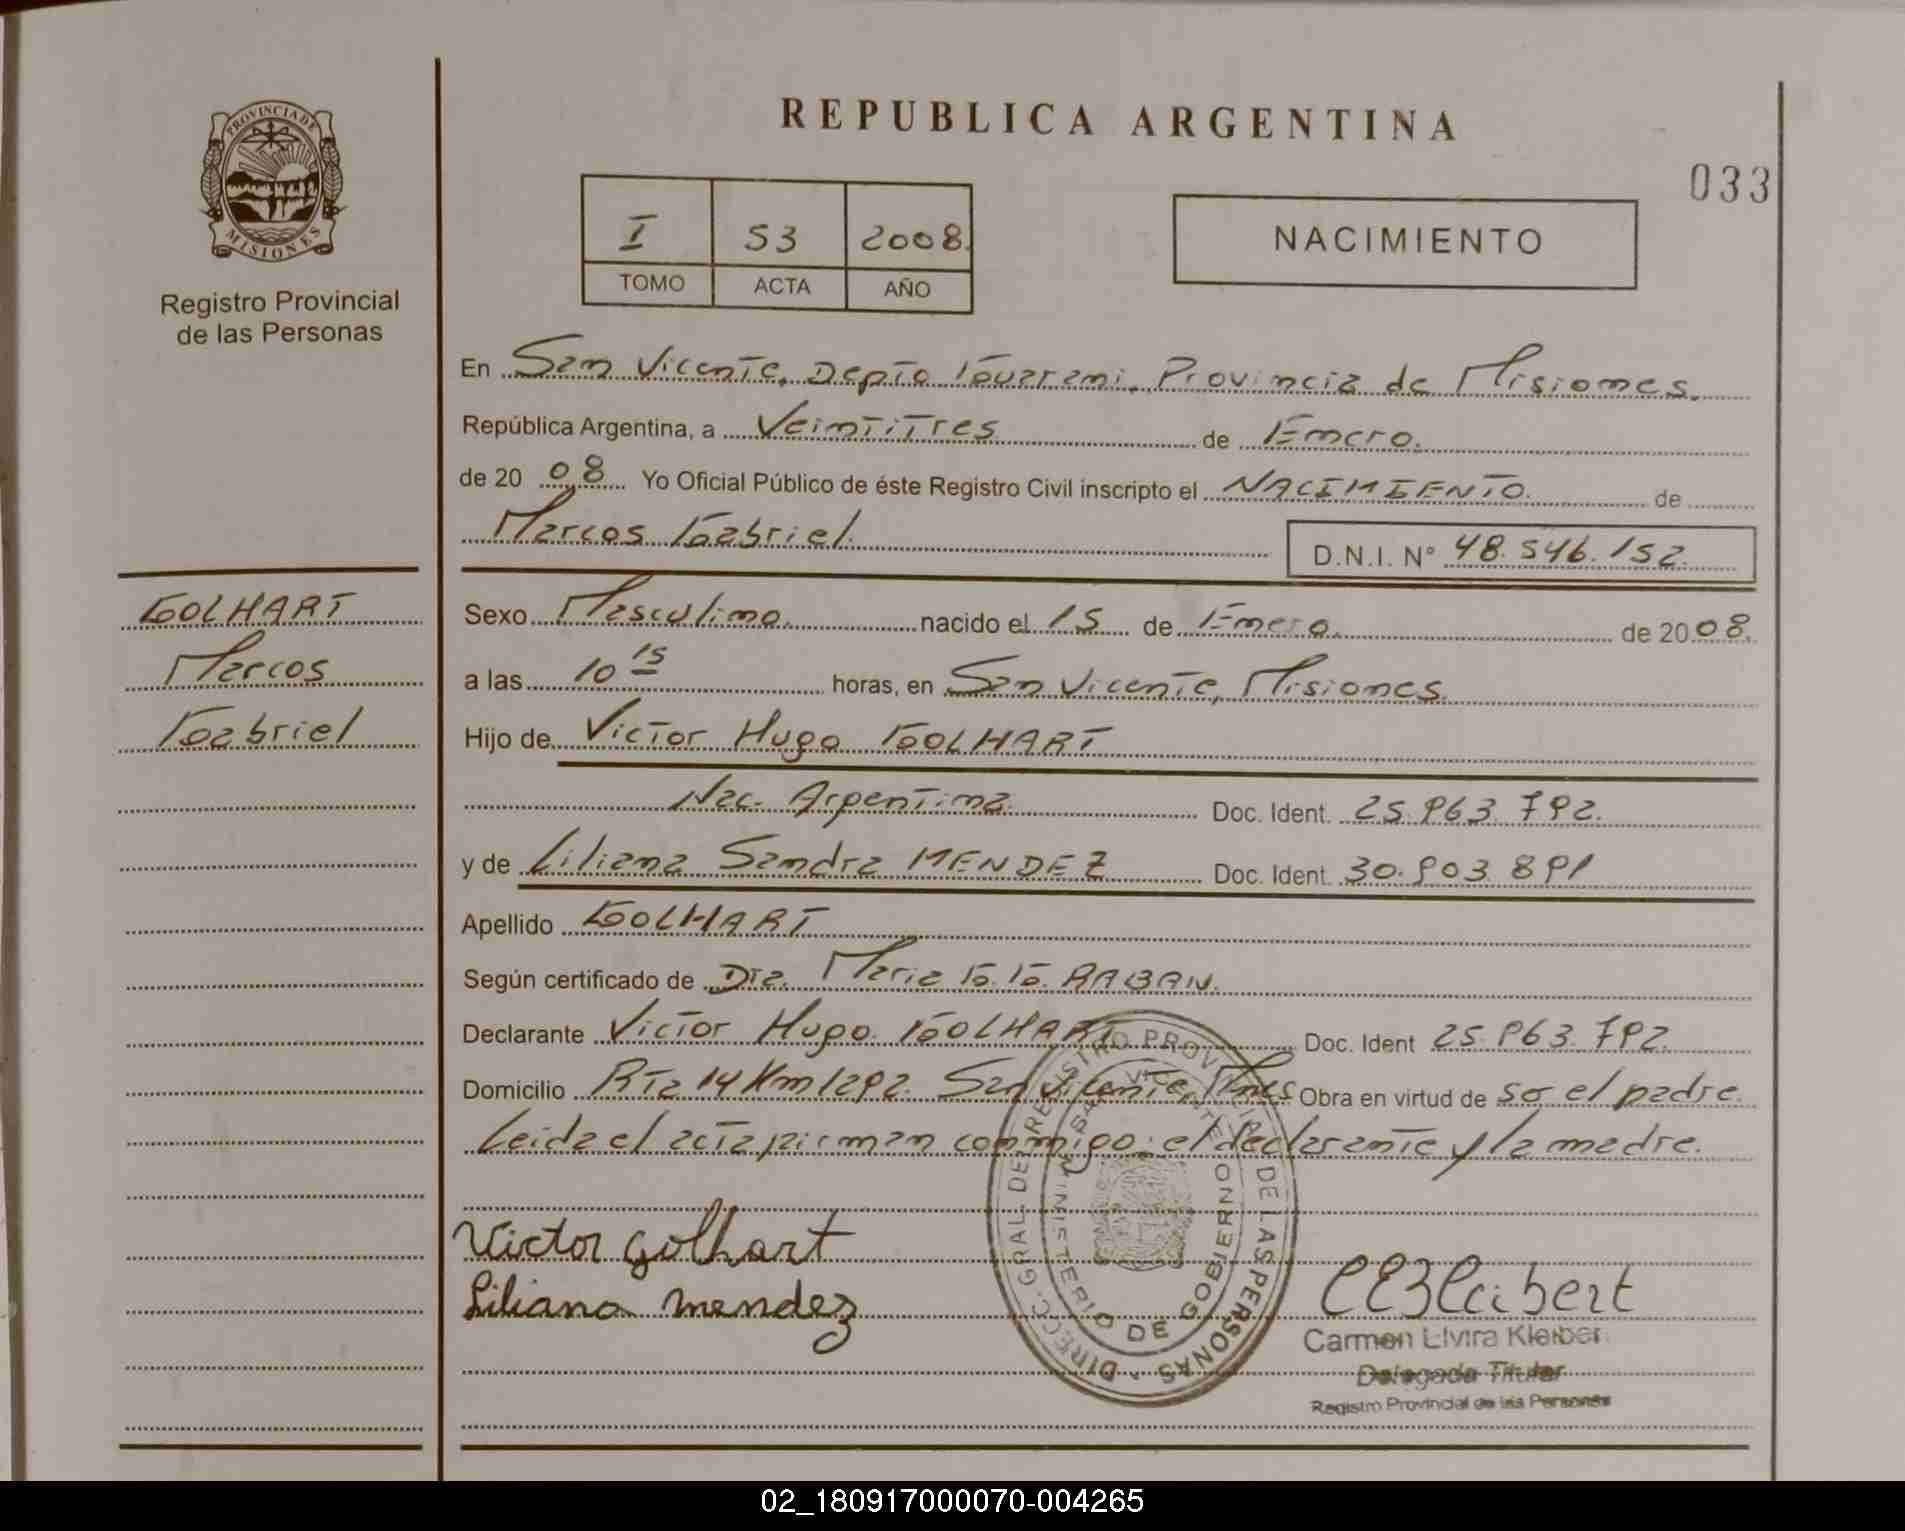 PROVINCIA DE
MISIONES
Registro Provincial
de las Personas
REPUBLICA ARGENTINA
033
I 53 2008.
TOMO ACTA AÑO
NACIMIENTO
En San Vicente, Depto Guarani, Provincia de Misiones.
República Argentina, a Veintitres de Enero.
de 20 08 Yo Oficial Público de éste Registro Civil inscripto el NACIMIENTO. de
Marcos Gabriel.
D.N.I. Nº 48.546.152.
GOLHART
Marcos
Gabriel
Sexo Masculino. nacido el 15 de Enero. de 20 08.
a las 10 15 horas, en San Vicente, Misiones.
Hijo de Victor Hugo GOLHART
Nac. Argentina. Doc. Ident. 25.963.792.
y de Liliana Sandra MENDEZ Doc. Ident. 30.903.891
Apellido GOLHART
Según certificado de Dra. Maria G. G. RABAN.
Declarante Victor Hugo. GOLHART Doc. Ident 25.963.792.
Domicilio Rta 14 Km 1292. San Vicente, Mnes Obra en virtud de so el padre.
Leida el acta firman conmigo: el declarante y la madre.
Victor Golhart
Liliana Mendez
DIRECC. GRAL. DE REGISTRO PROVINCIAL DE LAS PERSONAS
MINISTERIO DE GOBIERNO
SAN VICENTE
CEKleibert
Carmen Elvira Kleiber
Delegada Titular
Registro Provincial de las Personas
02_180917000070-004265